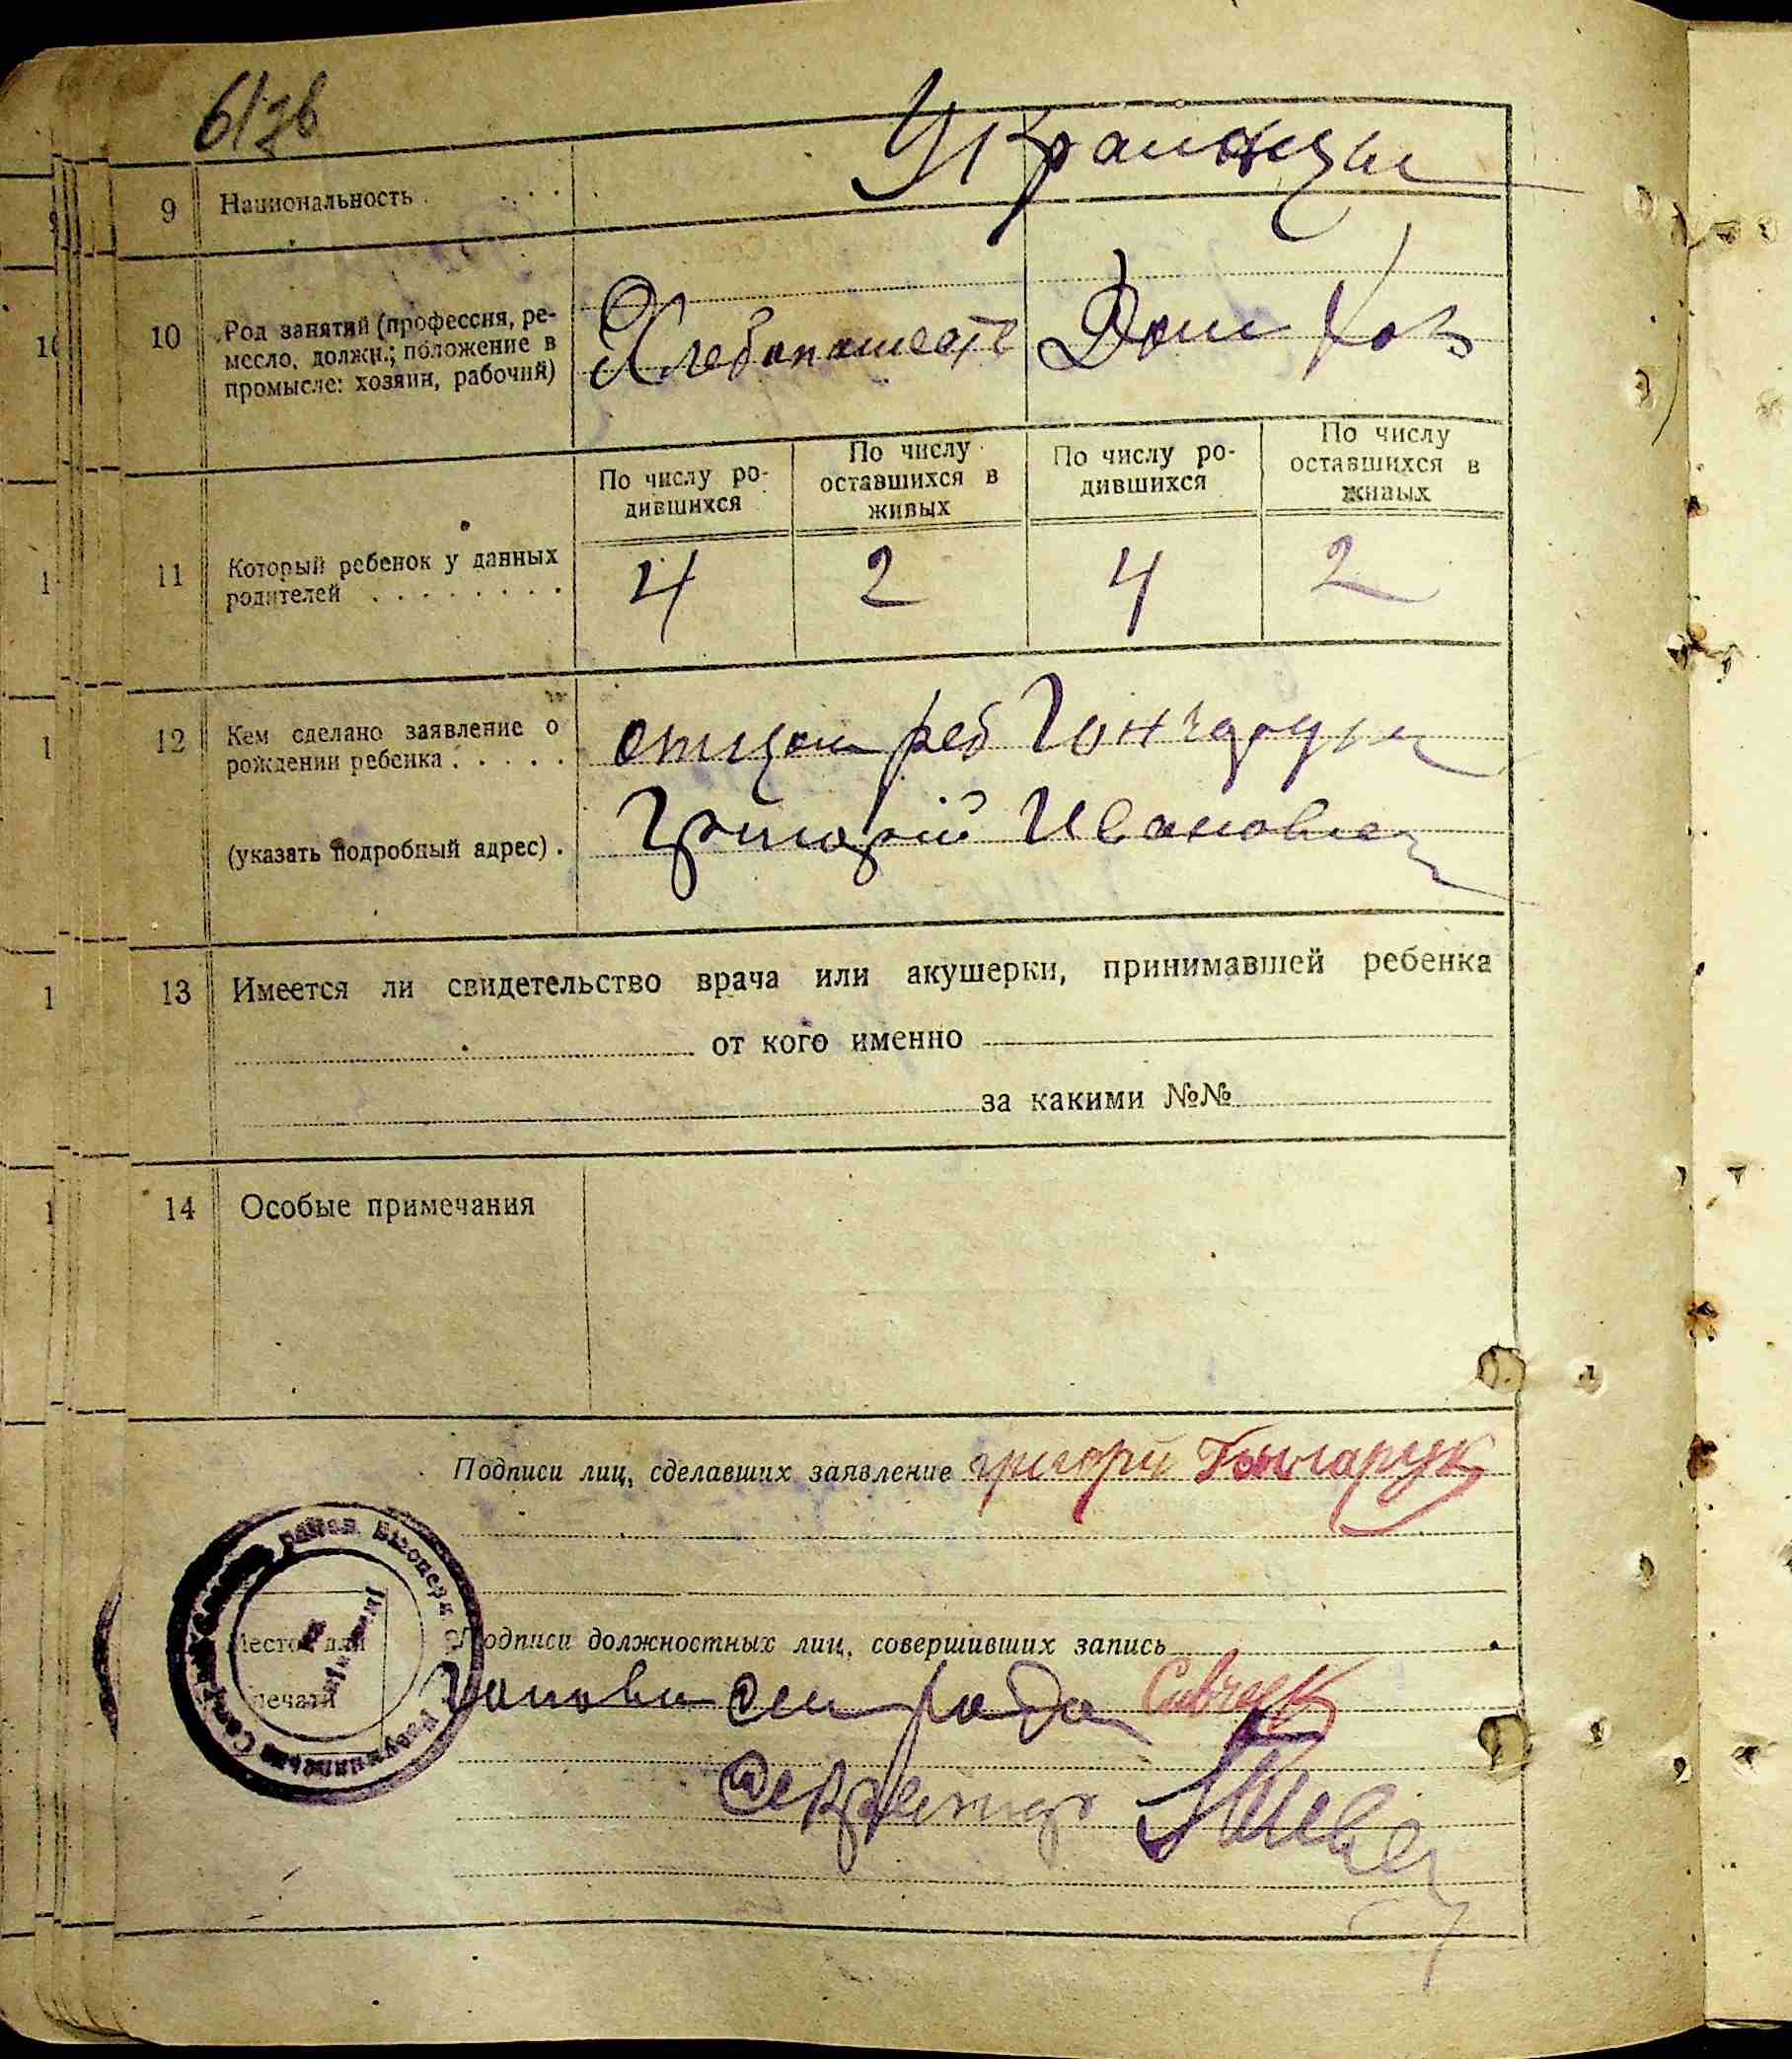 9 Национальность . . . . Украинцы
10 Род занятий (профессия, ре-
месло, должн.; положение в
промысле: хозяин, рабочий)
Хлебопашест Дом Хоз
По числу ро-
дившихся
По числу
оставшихся в
живых
По числу ро-
дившихся
По числу
оставшихся в
живых
11 Который ребенок у данных
родителей . . . . . . . .
4 2 4 2
12 Кем сделано заявление о
рождении ребенка . . . . .
отцом реб Гончаруком
(указать подробный адрес) .
Григорий Иванович
13 Имеется ли свидетельство врача или акушерки, принимавшей ребенка
от кого именно
за какими №№
14 Особые примечания
Подписи лиц, сделавших заявление григорій Гончарук
Место для
печати
Подписи должностных лиц, совершивших запись
Голова Сел рада
Секретар